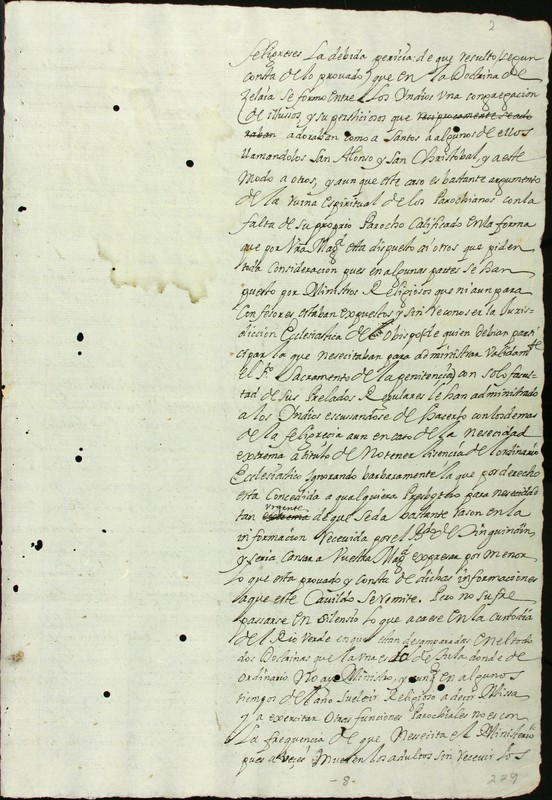 2
feligreses La debida pericia: de que resulto (segun
consta de lo provado) que en la Doctrina de
Zelaia se formo entre Los Yndios vna congregacion
de illusos, y supersticiosos que reciprocamente se ado
raban adoraban como a Santos a algunos de ellos
llamandolos San Alonso y San Christobal, y a este
modo a otros, y aunque este caso es bastante argumento
de la ruina espiritual de los Parochianos con la
falta de su proprio Parocho Calificado en la forma
que por Vra Magd esta dispuesto ai otros que piden
toda Consideracion pues en algunas partes se han
puesto por Ministros Religiosos que ni aun para
Confesores estaban expuestos y sin reconoser la Juris-
diccion Ecclesiastica del Obispo (de quien debian parti
cipar la que necesitaban para administrar validamte
el Sto Sacramento de la penitencia) con solo facul-
tad de sus Prelados Regulares le han administrado
a los Yndios escusandose de hacerlo con los demas
de la feligrecia aun en caso de la nesecidad
extrema a titulo de no tener licencia del ordinario
Ecclesiastico ignorando barbaramente la que por derecho
esta Concedida a qualquiera Presbytero para nesecidad
vrgente
tan extrema de que se da bastante rason en la
informacion recevida por el Bdo de Singuindin,
y seria cansar a Vuestra Magd expresar por menor
lo que esta provado y consta de dichas informaciones
a que este Cavildo se remite. Pero no sufre
passarse en silensio lo que acaese en la custodia
del Rio Verde en que estan desamparadas enteramte
dos Doctrinas que la vna es la de Tula donde de
ordinario no ay Ministro, y aunq en algunos
tiempos del año suele ir Religioso a decir Missa
y a exercitar otras funciones Parochiales no es con
la frequencia de que Necesita el Ministerio
pues a veses mueren los adultos sin recevir los
-8-
229